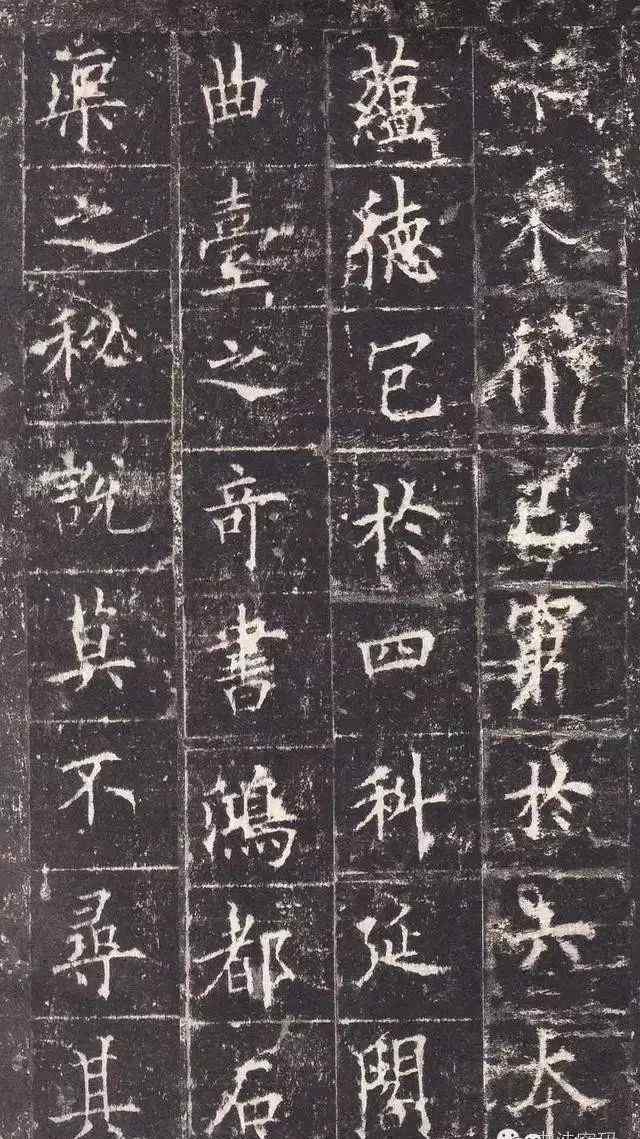 術已窮於六本
蘊德包於四科延閣
曲臺之奇書鴻都石
渠之秘說莫不尋其